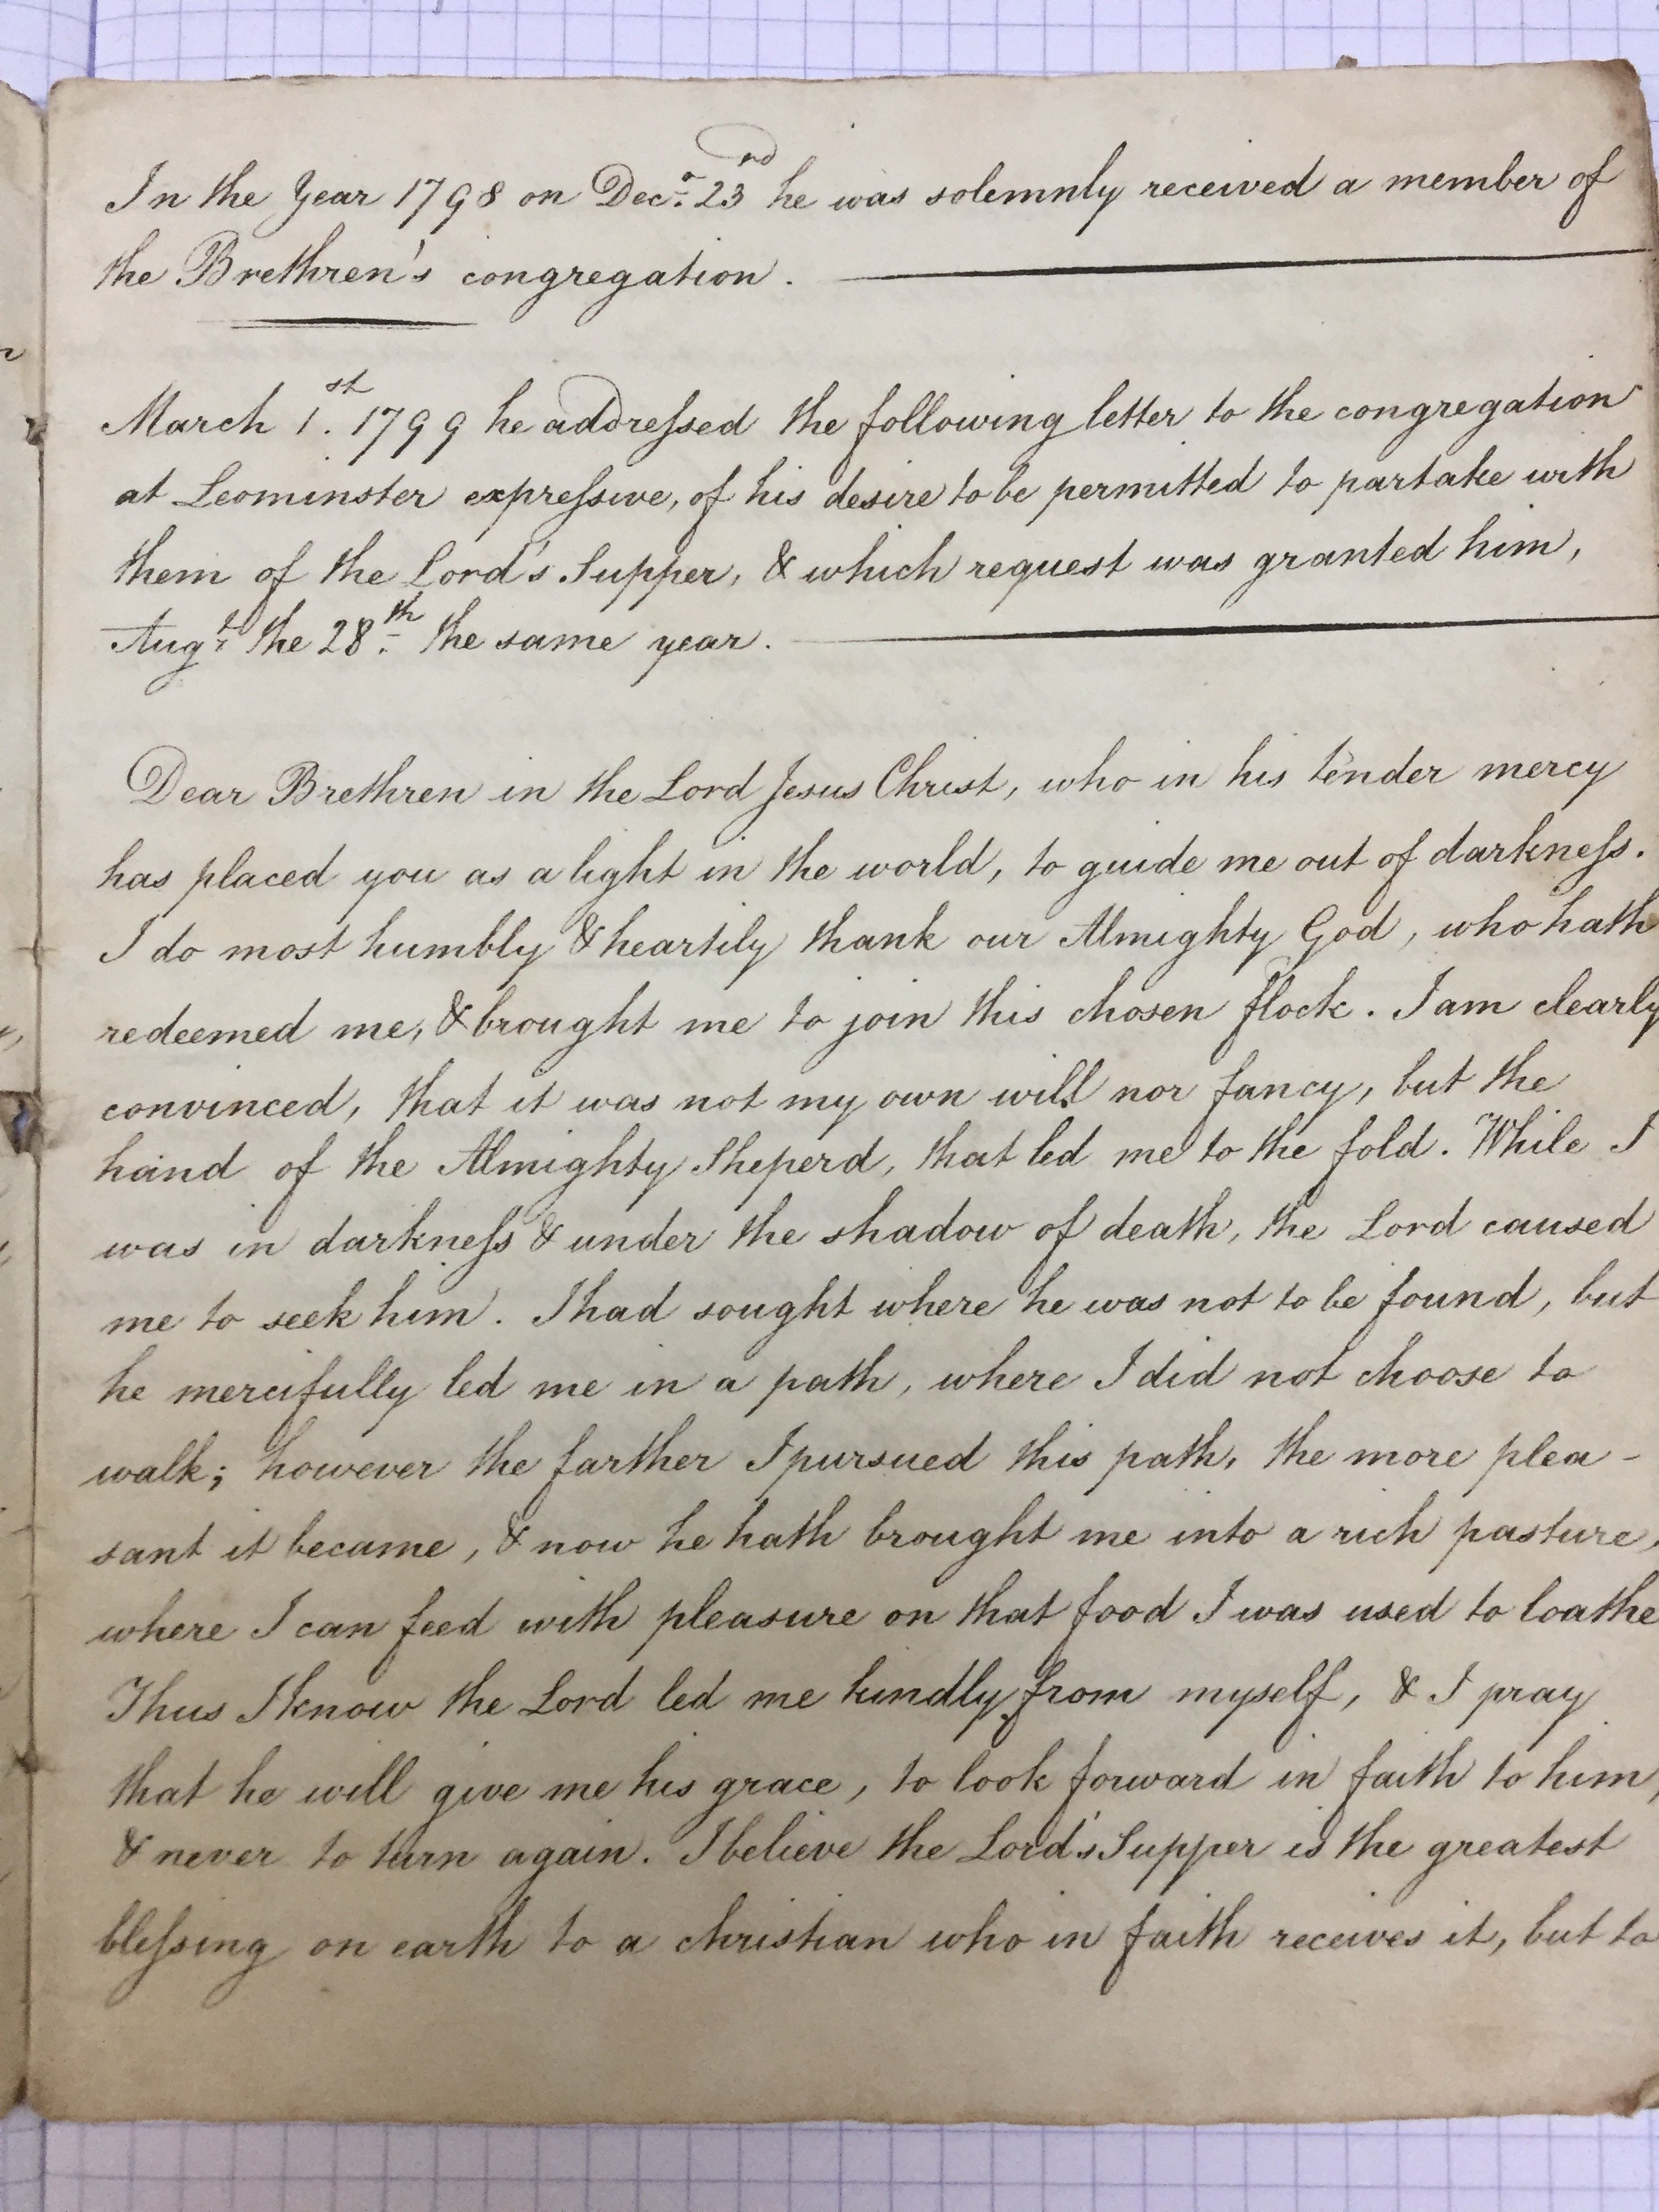 In the Year 1798 on Decr. 23rd he was solemnly received a member of
the Brethren's congregation.
March 1st. 1799 he addreſsed the following letter to the congregation
at Leominster expreſsive, of his desire to be permitted to partake with
them of the Lord's Supper, & which request was granted him,
Augt. the 28th. the same year.
Dear Brethren in the Lord Jesus Christ, who in his tender mercy
has placed you as a light in the world, to guide me out of darkneſs.
I do most humbly & heartily thank our Almighty God, who hath
redeemed me, & brought me to join this chosen flock. I am clearly
convinced, that it was not my own will nor fancy, but the
hand of the Almighty Sheperd, that led me to the fold. While I
was in darkneſs & under the shadow of death, the Lord caused
me to seek him. I had sought where he was not to be found, but
he mercifully led me in a path, where I did not choose to
walk; however the farther I pursued this path, the more plea-
sant it became, & now he hath brought me into a rich pasture,
where I can feed with pleasure on that food I was used to loathe
Thus I know the Lord led me kindly from myself, & I pray
that he will give me his grace, to look forward in faith to him,
& never to turn again. I believe the Lord's Supper is the greatest
bleſsing on earth to a christian who in faith receives it, but to